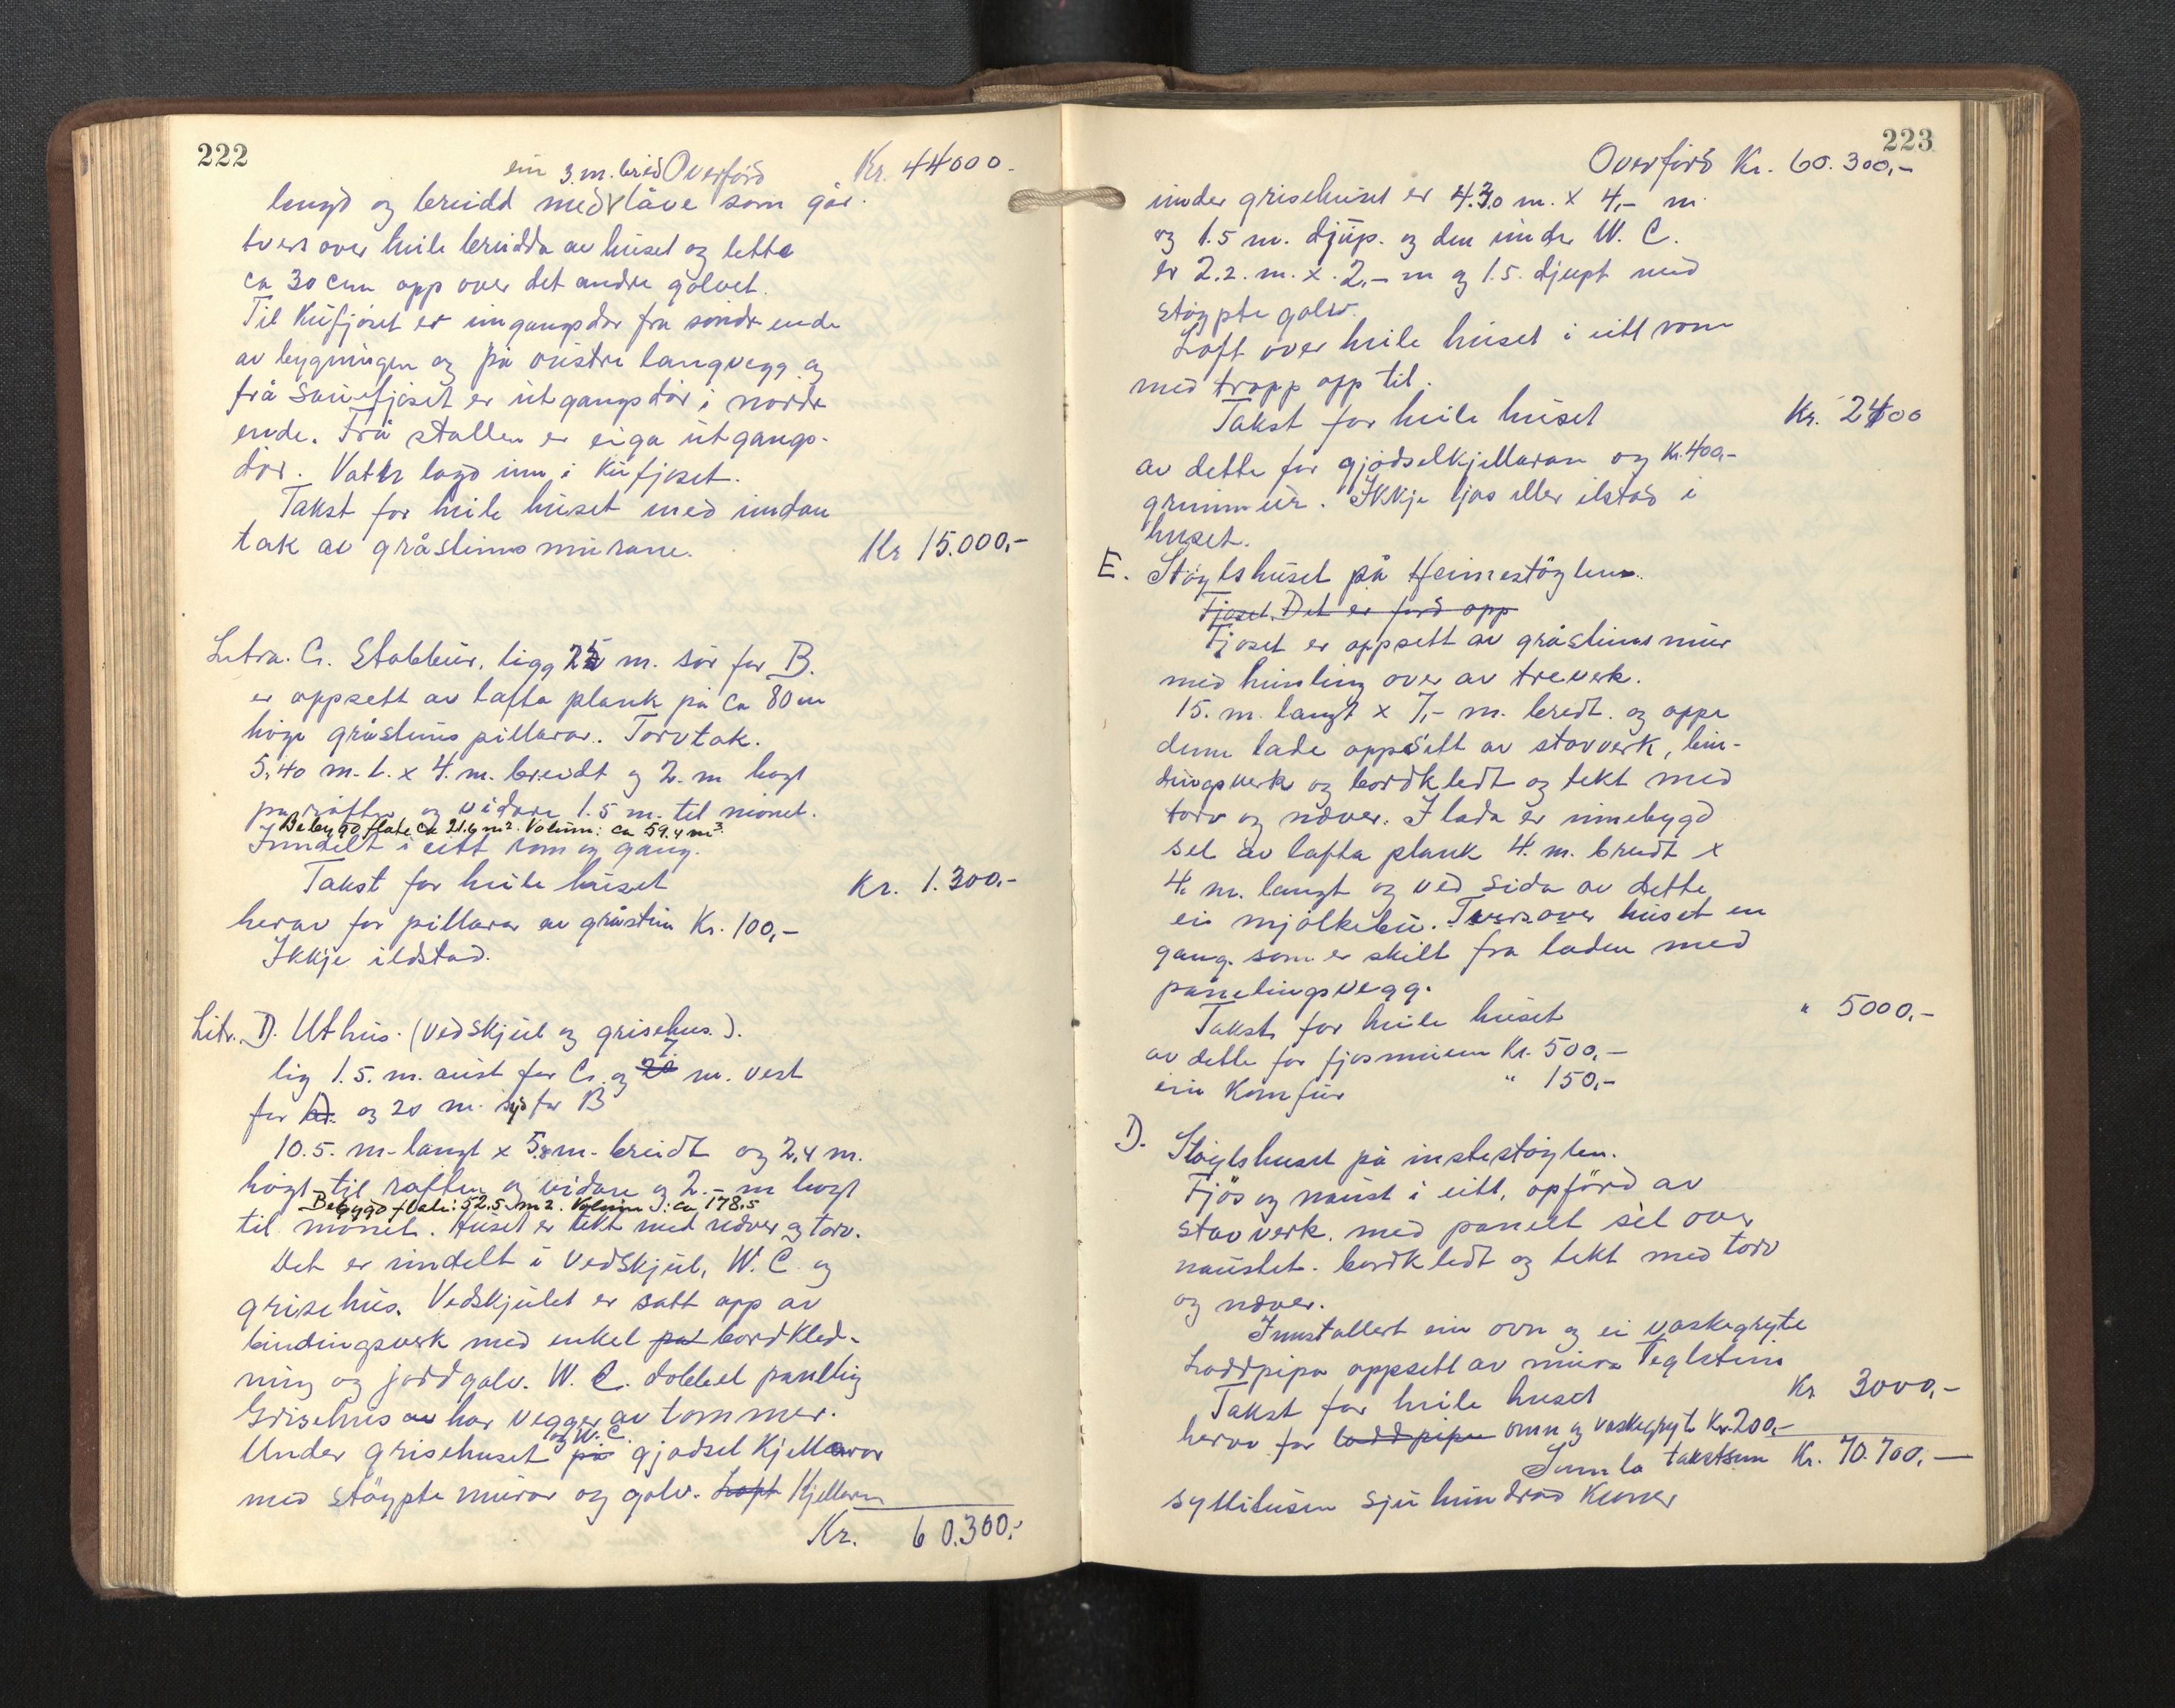 222
ein 3. m. breid Overförd Kr. 44000.-
lengd og breidd med låve som går
tvers over heile breidda av huset og lettc
ca 30 cm opp over det andre golvet.
Til Kufjöset er inngangsdör fra söndre ende
av bygningen og på austre langvegg og
frå Sauefjöset er utgangsdör i nordre
ende. Frå stallen er eiga utgangs-
dör. Vatn lagd inn i Kufjöset.
Takst for heile huset med undan
tak av gråsteinsmurane. Kr 15.000,-
Litra. C. Stabbur, ligg 25 m. sör for B.
er oppsett av lafta plank på ca 80 cm
höge gråsteinspillarar. Torvtak.
5,40 m. l. x 4. m. breidt og 2. m högt
på röften og vidare 1.5 m. til mönet.
Bebygd flate ca 21.6 m². Volum: ca 59.4 m³.
Inndelt i eitt rom og gang.
Takst for heile huset Kr. 1.300,-
herav for pillarar av gråstein Kr. 100,-
Ikkje ildstad.
Litr. D. Uthus. (vedskjul og grisehus.).
lig 1.5. m. aust for C. og 7 m. vest
for og 20 m. syd for B
10.5. m. langt x 5.8 m. breidt og 2,4 m.
högt til raften og vidare og 2.- m högt
Bebygd flate: 52.5 m2. Volum: ca 178,5
til mönet. Huset er tekt med never og torv.
Det er inndelt i Vedskjul, W. C. og
grisehus. Vedskjulet er satt opp av
bindingsverk med enkel pa bordkled-
ning og jordgolv. W. C. dobbel panelling
Grisehus av har vegger av tommer.
og W. C.
Under grisehuset på gjödsel Kjellarar
med stöypte murar og golv. Loft Kjellaren
Kr. 60.300,-
223
Overförd Kr. 60.300,-
under grisehuset er 4.30 m. x 4,- m.
og 1.5 m. djup. og den under W. C.
er 2.2. m. x 2,- m og 1.5. djupt med
stöypte golv.
Loft over heile huset i eitt rom
med tropp opp til.
Takst for heile huset Kr. 2400
av dette for gjödselkjellaran og Kr. 400,-
grunnmur. Ikkje ljos eller ilstad i
huset.
E. Stöylshuset på Heimestöylen.
Fjöset. Det er förd opp
Fjöset er oppsett av gråsteinsmur
med himling over av treverk.
15. m. langt x 7,- m. bredt. og oppe
denne lade oppsett av stavverk, bin-
dingsverk og bordkledt og tekt med
torv og never. I lada er innebygd
sel av lafta plank 4. m. breidt x
4. m. langt og ved sida av dette
ei mjölkebu. Tversover huset en
gang. som er skilt fra laden med
panelingsvegg.
Takst for heile huset " 5000,-
av dette for fjösmuren Kr. 500,-
ein Komfur " 150,-
D. Stöylshuset på instestöylen.
Fjös og naust i eitt, opförd av
stavverk. med panelt sel over
naustet. bordkledt og tekt med torv
og never.
Innstallert ein ovn og ei vaskegryte
Loddpipa oppsett av mura Teglstein
Takst for heile huset Kr 3000,-
herav for loddpipe omn og vaskegryt Kr. 200,-
Samla takstsum Kr. 70.700,-
syttitusen sju hundrad Kroner